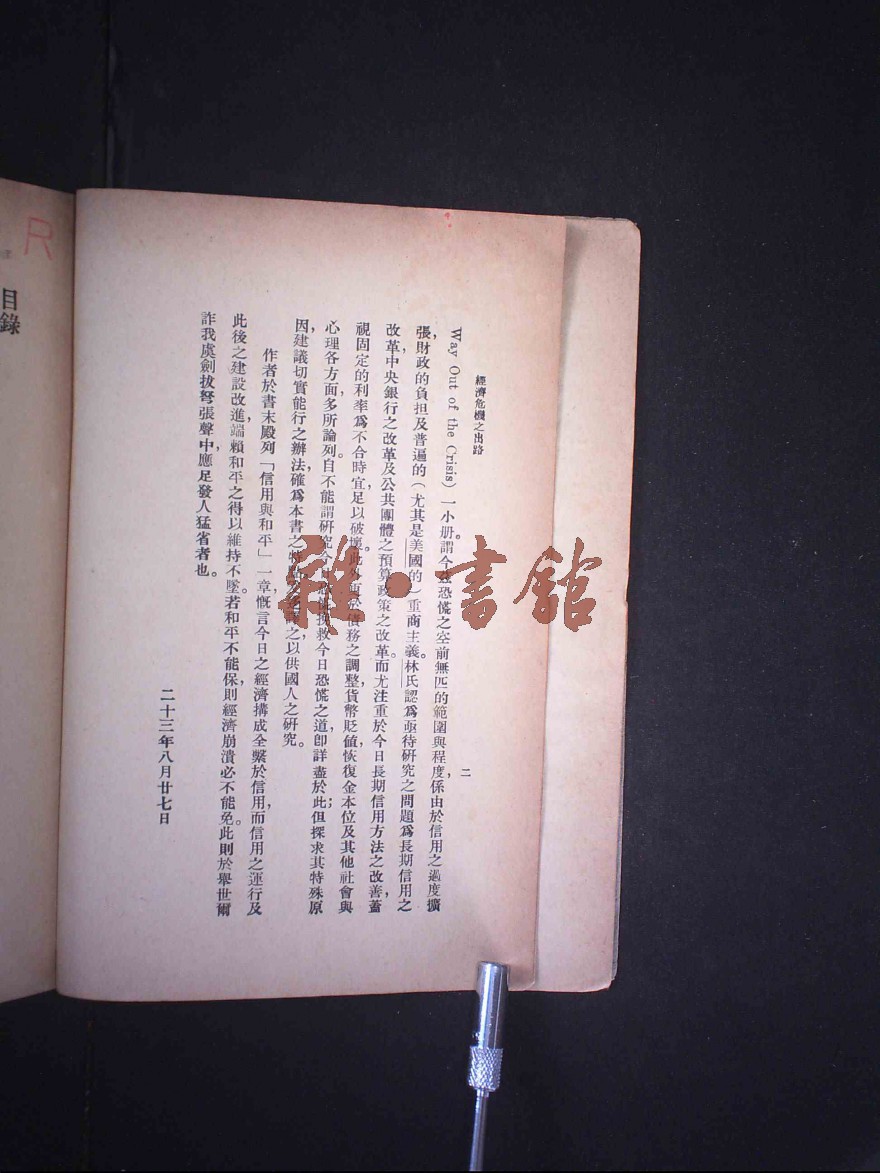 經濟危機之出路
二
Way Out of the Crisis)一小册。謂今茲恐慌之空前無匹的範圍與程度,係由於信用之過度擴
張,財政的負担及普遍的(尤其是美國的)重商主義。林氏認爲亟待研究之問題爲長期信用之
改革,中央銀行之改革及公共團體之預算政策之改革。而尤注重於今日長期信用方法之改善,蓋
視固定的利率爲不合時宜,足以破壞。此外更於債務之調整,貨幣貶值,恢復金本位及其他社會與
心理各方面,多所論列。自不能謂研究今日挽救今日恐慌之道,卽詳盡於此;但探求其特殊原
因,建議切實能行之辦法,確爲本書之特之以供國人之研究。
作者於書末殿列「信用與和平」一章,慨言今日之經濟搆成全繫於信用,而信用之運行及
此後之建設改進,端賴和平之得以維持不墜。若和平不能保,則經濟崩潰必不能免。此則於舉世爾
詐我虞劍拔弩張聲中,應足發人猛省者也。
二十三年八月廿七日
目錄
R
雜·書館